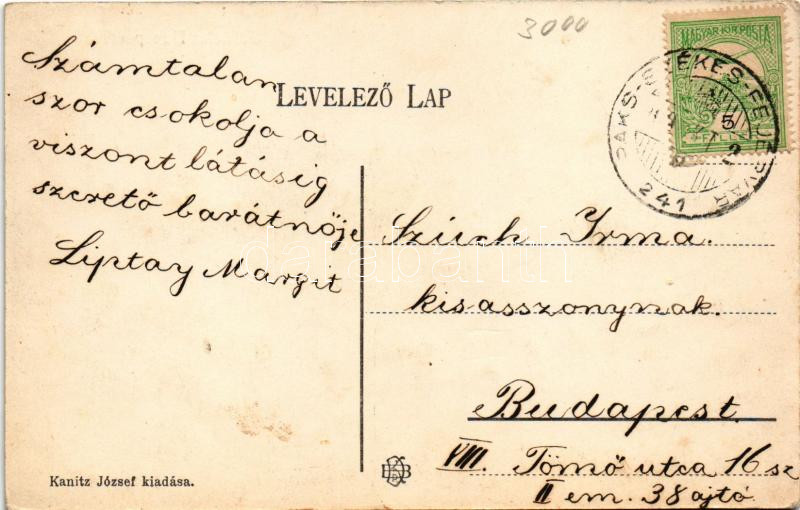 3000
MAGYAR KIR. POSTA
5
PAKS-SZÉKES-FEJÉRVÁR
241
LEVELEZŐ LAP
Számtalan
szor csokolja a
viszont látásig
szerető barátnője
Liptay Margit
Szüch Irma.
kisasszonynak.
Budapest.
VIII. Tömő utca 16 sz
II em. 38 ajtó
Kanitz József kiadása.
darabanth